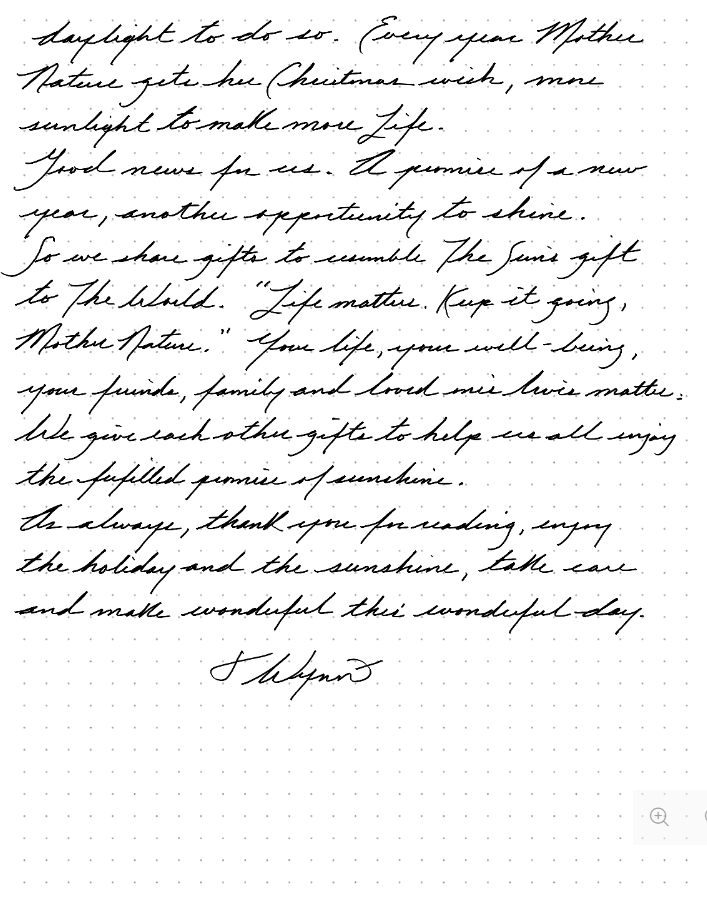 daylight to do so. Every year Mother
Nature gets her Christmas wish, more
sunlight to make more Life.
Good news for us. A promise of a new
year, another opportunity to shine.
So we share gifts to resemble The Sun's gift
to The World. "Life matters. Keep it going,
Mother Nature." Your life, your well-being,
your friends, family and loved one's lives matter.
We give each other gifts to help us all enjoy
the fufilled promise of sunshine.
As always, thank you for reading, enjoy
the holiday and the sunshine, take care
and make wonderful this wonderful day.
J Wynn